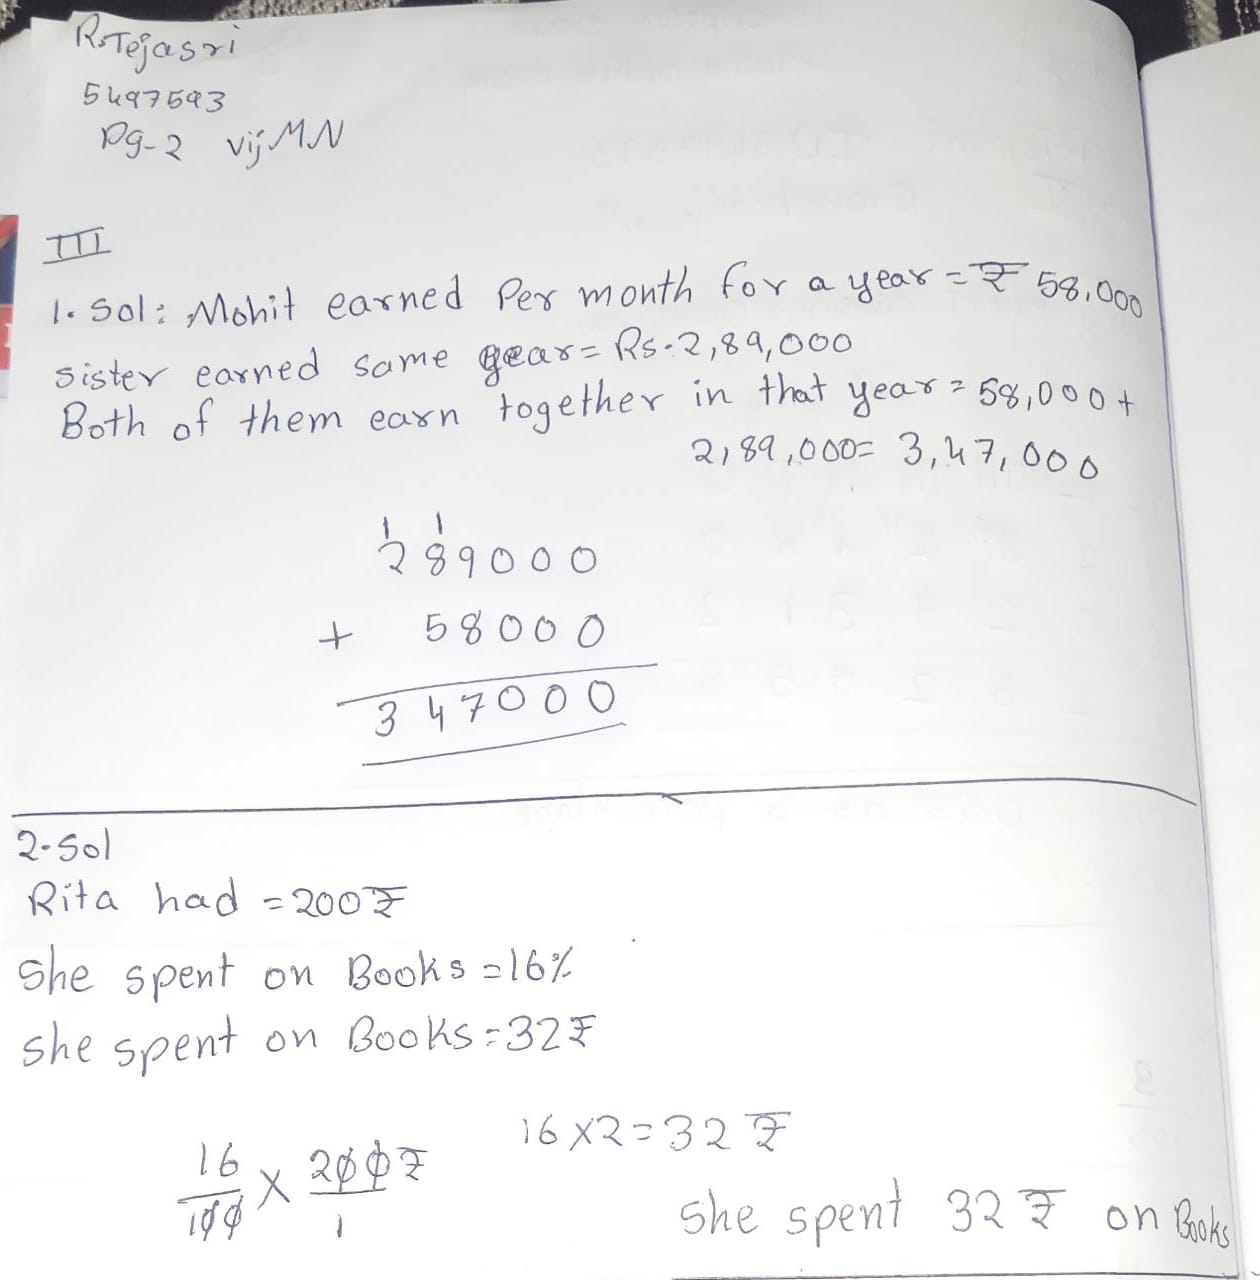 R.Tejasri
5497593
pg-2 vij MN
III
1. Sol: Mohit earned Per month for a year = ₹ 58,000
sister earned same year = Rs.2,89,000
Both of them earn together in that year = 58,000 +
2,89,000 = 3,47,000
1 1
289000
+ 58000
347000
2-Sol
Rita had = 200₹
She spent on Books = 16%
she spent on Books = 32₹
16/100 × 200₹/1
16 × 2 = 32 ₹
She spent 32 ₹ on Books